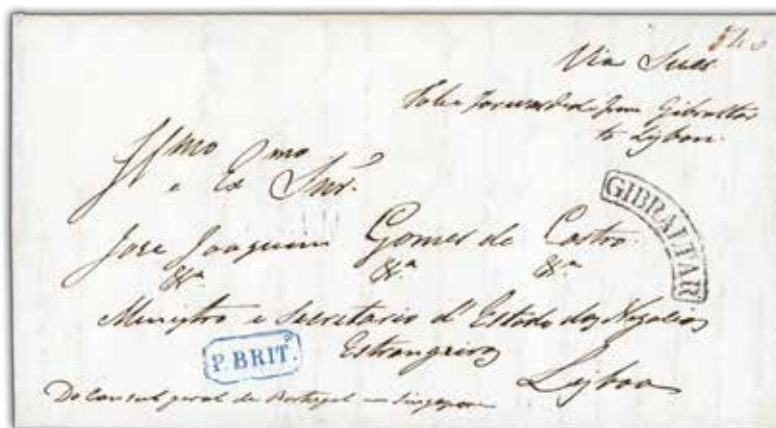 540
Via Suez
To be forwarded from Gibraltar
to Lisbon.
Illmo e Exmo Snr.
GIBRALTAR
Jose Joaquim Gomes de Castro.
&a &a &a
Ministro e Secretario d'Estado dos Negocios
Estrangeiros
P. BRIT.
Lisboa
Do Consul geral de Portugal em Singapore